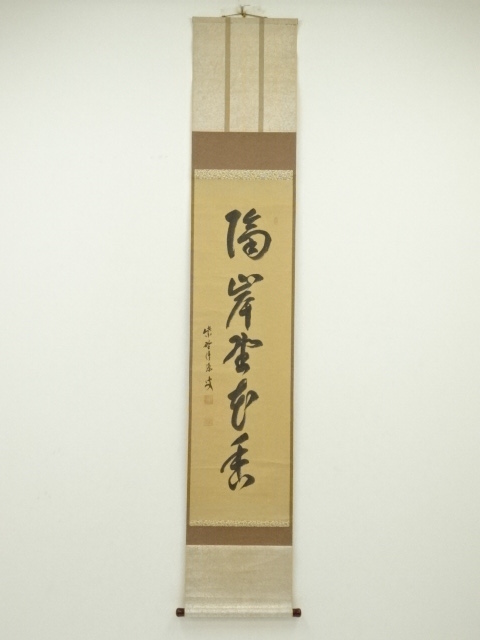 隔岸埜花香
紫野